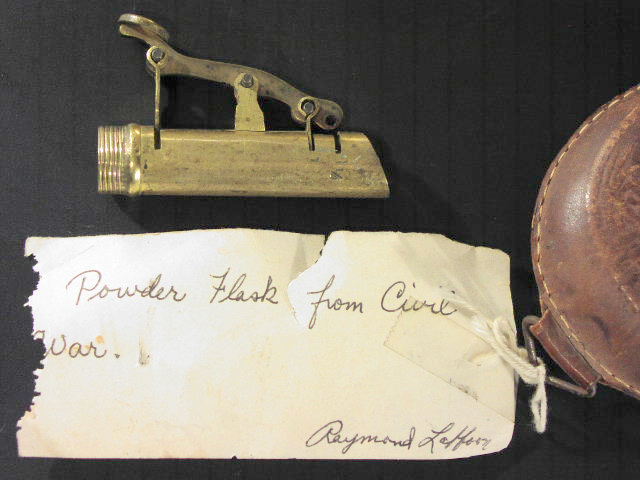 Powder Flask from Civil
War.
Raymond Laffoon